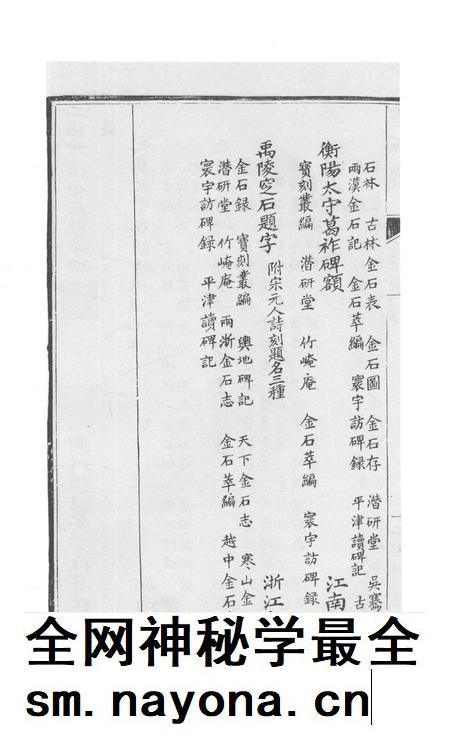 石林 古林金石表 金石圖 金石存 潛研堂 吳騫
兩漢金石記 金石萃編 寰宇訪碑録 平津讀碑記 古
衡陽太守葛祚碑額 江南
寶刻叢編 潛研堂 竹崦庵 金石萃編 寰宇訪碑録
禹陵窆石題字 附宋元人詩刻題名三種 浙江
金石録 寶刻叢編 輿地碑記 天下金石志 寒山金
潛研堂 竹崦庵 兩浙金石志 金石萃編 越中金石
寰宇訪碑録 平津讀碑記
全网神秘学最全
sm.nayona.cn